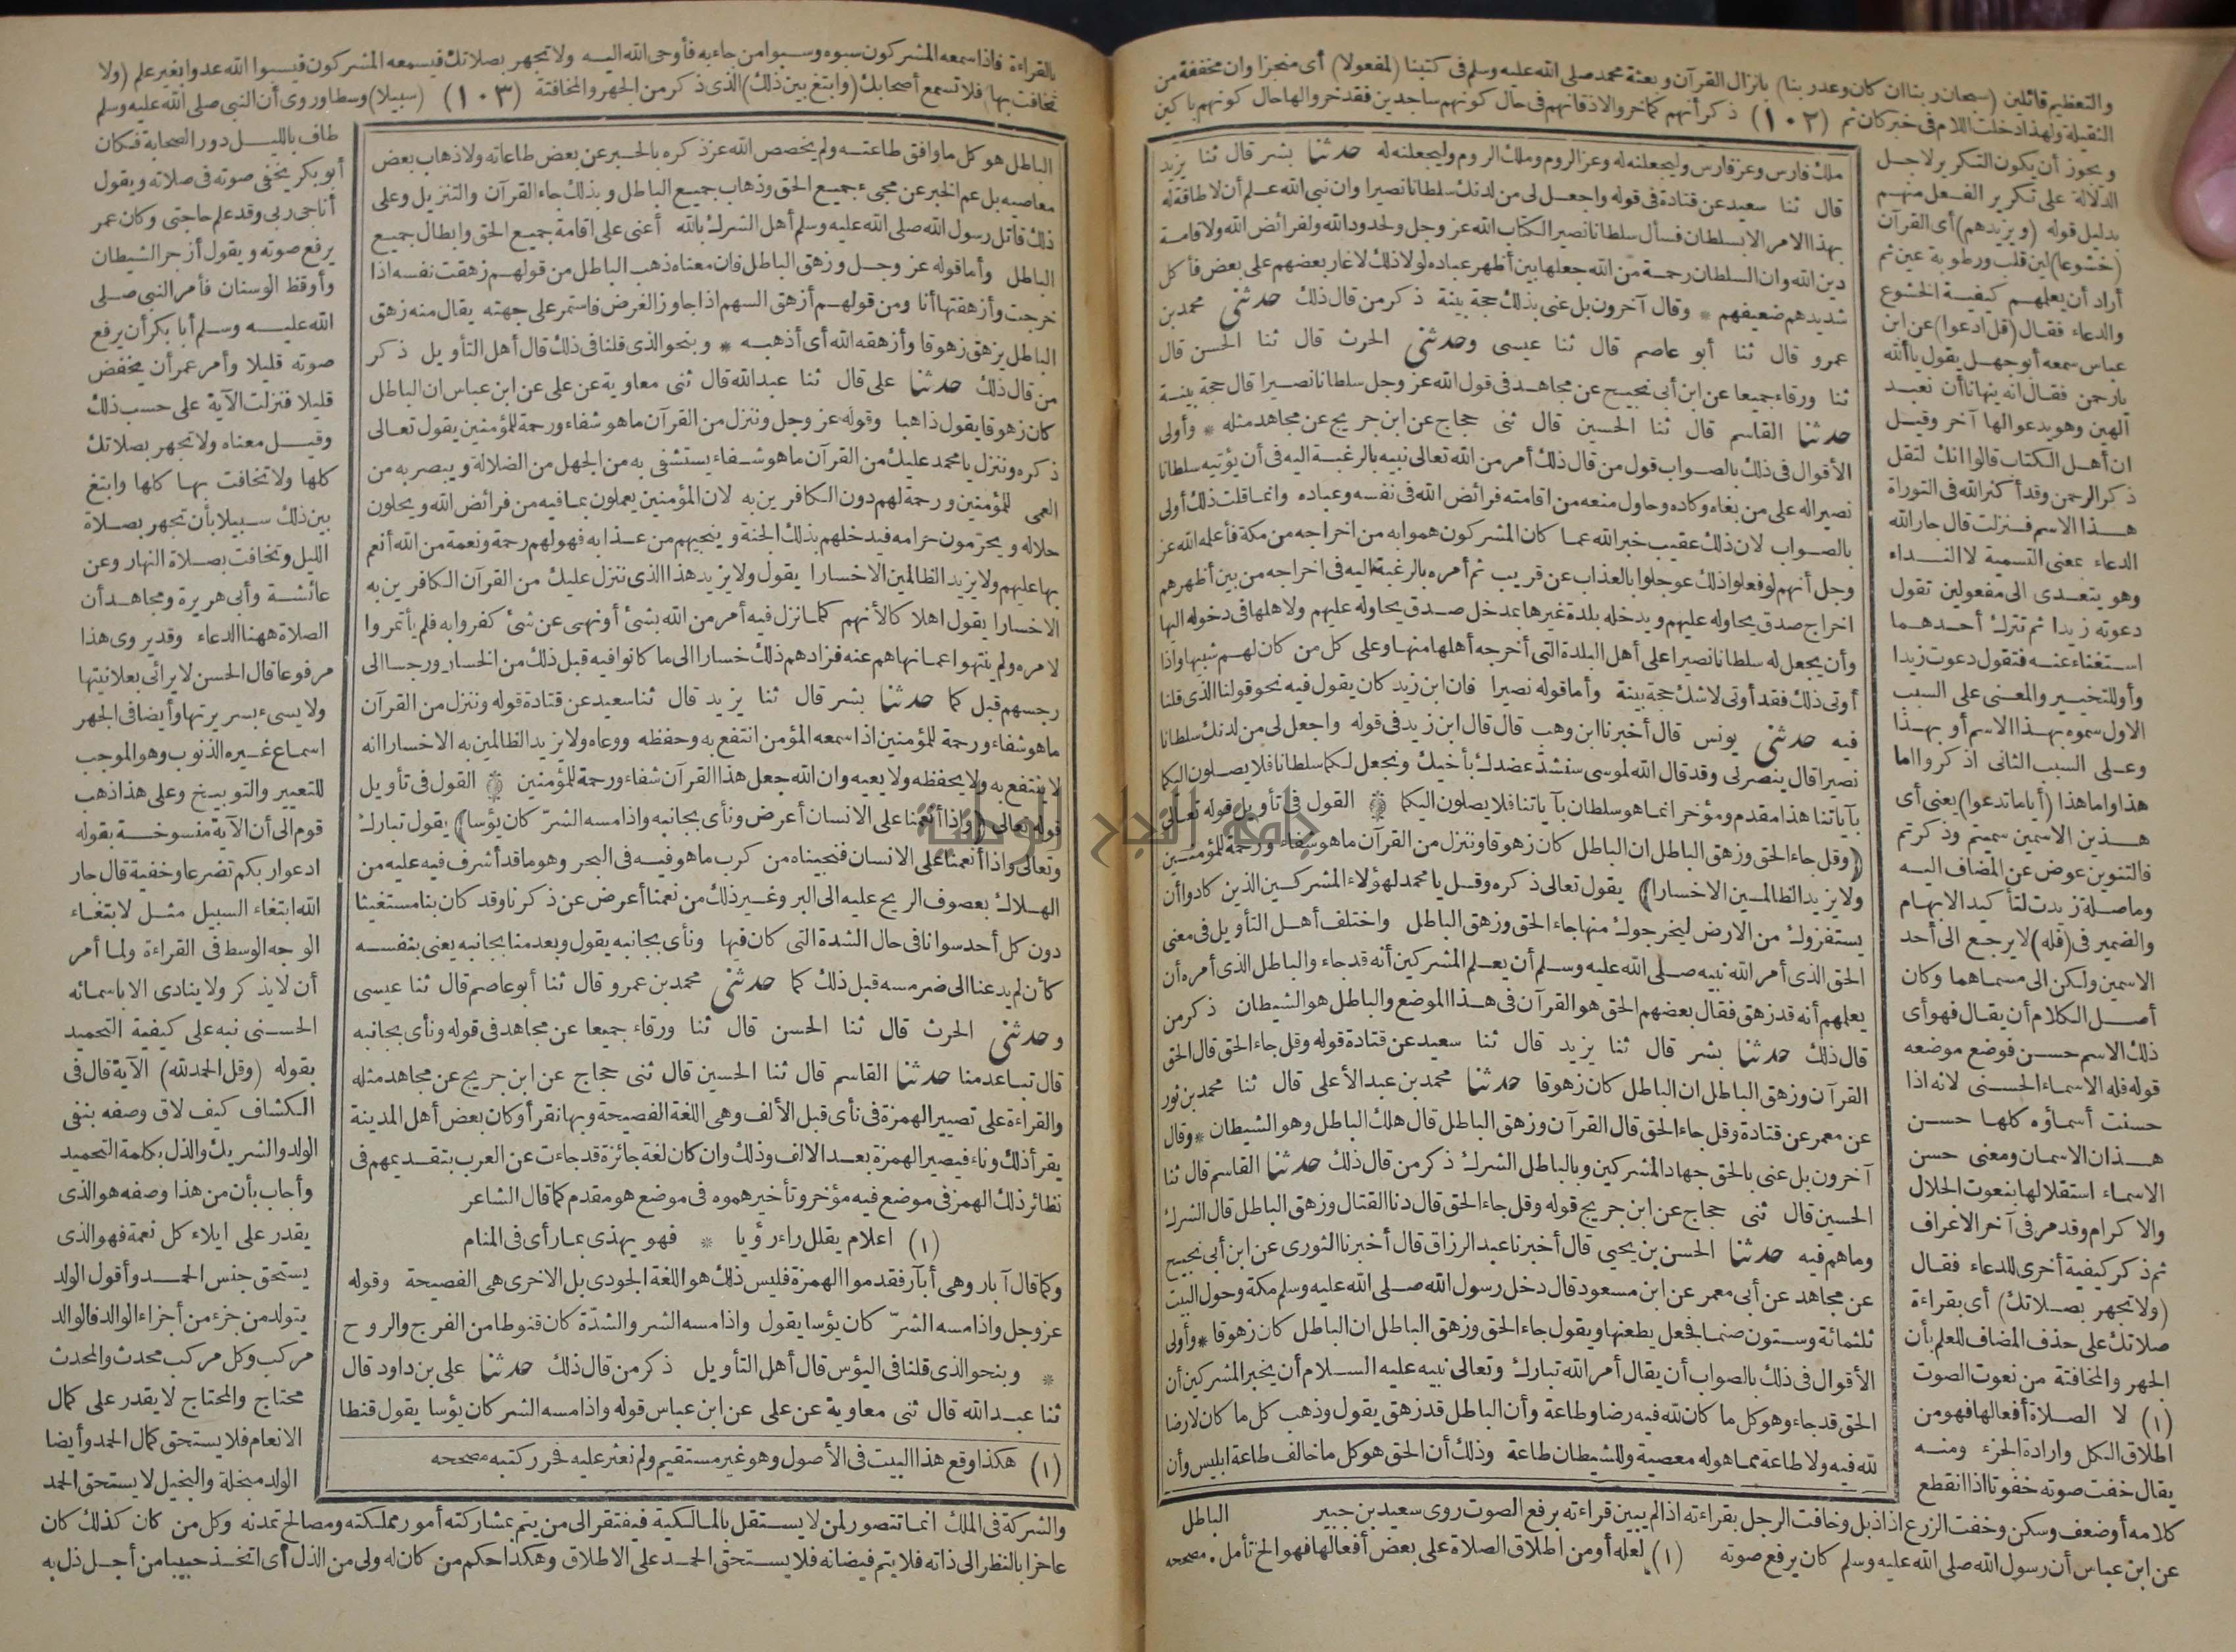 والتعظيم قائلين (سبحان ربنا ان كان وعد ربنا) بانزال القرآن وبعثة محمد صلى الله عليه وسلم فى كتبنا (لمفعولا) أى منجزا وان مخففة من
الثقيلة ولهذا دخلت اللام فى خبر كان ثم (١٠٢) ذكر أنهم كما خروا لاذقانهم فى حال كونهم ساجدين فقد خروا لها حال كونهم باكين
ويجوز أن يكون التكرير لاجل
الدلالة على تكرير الفعل منهم
بدليل قوله (ويزيدهم) أى القرآن
(خشوعا) لين قلب ورطوبة عين ثم
أراد أن يعلمهم كيفية الخشوع
والدعاء فقال (قل ادعوا) عن ابن
عباس سمعه أبو جهل يقول يا ألله
يا رحمن فقال انه ينهانا أن نعبد
الهين وهو يدعو الها آخر وقيل
ان أهل الكتاب قالوا انك لتقل
ذكر الرحمن وقد أكثر الله فى التوراة
هذا الاسم فنزلت قال جار الله
الدعاء بمعنى التسمية لا النداء
وهو يتعدى الى مفعولين تقول
دعوته زيدا ثم تترك أحدهما
استغناء عنه فتقول دعوت زيدا
وأو للتخيير والمعنى على السبب
الاول سموه بهذا الاسم أو بهذا
وعلى السبب الثانى اذكروا اما
هذا واما هذا (أياما تدعوا) يعنى أى
هذين الاسمين سميتم وذكرتم
فالتنوين عوض عن المضاف اليه
وما صلة زيدت لتأكيد الابهام
والضمير فى (فله) لا يرجع الى أحد
الاسمين ولكن الى مسماهما وكان
أصل الكلام أن يقال فهو أى
ذلك الاسم حسن فوضع موضعه
قوله فله الاسماء الحسنى لانه اذا
حسنت أسماؤه كلها حسن
هذان الاسمان ومعنى حسن
الاسماء استقلالها بنعوت الجلال
والاكرام وقد مر فى آخر الاعراف
ثم ذكر كيفية أخرى للدعاء فقال
(ولا تجهر بصلاتك) أى بقراءة
صلاتك على حذف المضاف للعلم بأن
الجهر والمخافتة من نعوت الصوت
(١) لا الصلاة أفعالها فهو من
اطلاق الكل وارادة الجزء ومنه
يقال خفت صوته خفوتا اذا انقطع
ملك فارس وعز فارس وليجعلنه له وعز الروم وملك الروم وليجعلنه له حدثنا بشر قال ثنا يزيد
قال ثنا سعيد عن قتادة فى قوله واجعل لى من لدنك سلطانا نصيرا وان نبى الله علم أن لا طاقة له
بهذا الامر الا بسلطان فسأل سلطانا نصيرا لكتاب الله عز وجل ولحدود الله ولفرائض الله ولاقامة
دين الله وان السلطان رحمة من الله جعلها بين أظهر عباده لولا ذلك لاغار بعضهم على بعض فأكل
شديدهم ضعيفهم * وقال آخرون بل عنى بذلك حجة بينة ذكر من قال ذلك حدثنى محمد بن
عمرو قال ثنا أبو عاصم قال ثنا عيسى وحدثنى الحرث قال ثنا الحسن قال
ثنا ورقاء جميعا عن ابن أبى نجيح عن مجاهد فى قول الله عز وجل سلطانا نصيرا قال حجة بينة
حدثنا القاسم قال ثنا الحسين قال ثنى حجاج عن ابن جريج عن مجاهد مثله * وأولى
الأقوال فى ذلك بالصواب قول من قال ذلك أمر من الله تعالى نبيه بالرغبة اليه فى أن يؤتيه سلطانا
نصيرا له على من بغاه وكاده وحاول منعه من اقامته فرائض الله فى نفسه وعباده وانما قلت ذلك أولى
بالصواب لان ذلك عقيب خبر الله عما كان المشركون هموا به من اخراجه من مكة فأعلمه الله عز
وجل أنهم لو فعلوا ذلك عوجلوا بالعذاب عن قريب ثم أمره بالرغبة اليه فى اخراجه من بين أظهرهم
اخراج صدق يحاوله عليهم ويدخله بلدة غيرها بمدخل صدق يحاوله عليهم ولاهلها فى دخوله اليها
وأن يجعل له سلطانا نصيرا على أهل البلدة التى أخرجه أهلها منها وعلى كل من كان لهم شبيها واذا
أوتى ذلك فقد أوتى لا شك حجة بينة وأما قوله نصيرا فان ابن زيد كان يقول فيه نحو قولنا الذى قلنا
فيه حدثنى يونس قال أخبرنا ابن وهب قال قال ابن زيد فى قوله واجعل لى من لدنك سلطانا
نصيرا قال ينصرنى وقد قال الله لموسى سنشد عضدك بأخيك ونجعل لكما سلطانا فلا يصلون اليكما
بآياتنا هذا مقدم ومؤخر انما هو سلطان بآياتنا فلا يصلون اليكما * القول فى تأويل قوله تعالى
(وقل جاء الحق وزهق الباطل ان الباطل كان زهوقا وننزل من القرآن ما هو شفاء ورحمة للمؤمنين
ولا يزيد الظالمين الا خسارا) يقول تعالى ذكره وقل يا محمد لهؤلاء المشركين الذين كادوا أن
يستفزوك من الارض ليخرجوك منها جاء الحق وزهق الباطل واختلف أهل التأويل فى معنى
الحق الذى أمر الله نبيه صلى الله عليه وسلم أن يعلم المشركين أنه قد جاء والباطل الذى أمره أن
يعلمهم أنه قد زهق فقال بعضهم الحق هو القرآن فى هذا الموضع والباطل هو الشيطان ذكر من
قال ذلك حدثنا بشر قال ثنا يزيد قال ثنا سعيد عن قتادة قوله وقل جاء الحق قال الحق
القرآن وزهق الباطل ان الباطل كان زهوقا حدثنا محمد بن عبد الأعلى قال ثنا محمد بن ثور
عن معمر عن قتادة وقل جاء الحق قال القرآن وزهق الباطل قال هلك الباطل وهو الشيطان * وقال
آخرون بل عنى بالحق جهاد المشركين وبالباطل الشرك ذكر من قال ذلك حدثنا القاسم قال ثنا
الحسين قال ثنى حجاج عن ابن جريج قوله وقل جاء الحق قال دنا القتال وزهق الباطل قال الشرك
وما هم فيه حدثنا الحسن بن يحيى قال أخبرنا عبد الرزاق قال أخبرنا الثورى عن ابن أبى نجيح
عن مجاهد عن أبى معمر عن ابن مسعود قال دخل رسول الله صلى الله عليه وسلم مكة وحول البيت
ثلثمائة وستون صنما فجعل يطعنها ويقول جاء الحق وزهق الباطل ان الباطل كان زهوقا * وأولى
الأقوال فى ذلك بالصواب أن يقال أمر الله تبارك وتعالى نبيه عليه السلام أن يخبر المشركين أن
الحق قد جاء وهو كل ما كان لله فيه رضا وطاعة وأن الباطل قد زهق يقول وذهب كل ما كان لا رضا
لله فيه ولا طاعة مما هو له معصية وللشيطان طاعة وذلك أن الحق هو كل ما خالف طاعة ابليس وأن
كلامه أو ضعف وسكن وخفت الزرع اذا ذبل وخافت الرجل بقراءته اذا لم يبين قراءته برفع الصوت روى سعيد بن جبير الباطل
عن ابن عباس أن رسول الله صلى الله عليه وسلم كان يرفع صوته (١) لعله أو من اطلاق الصلاة على بعض أفعالها فهو الخ تأمل . مصححه
بالقراءة فاذا سمعه المشركون سبوه وسبوا من جاء به فأوحى الله اليه ولا تجهر بصلاتك فيسمعه المشركون فيسبوا الله عدوا بغير علم (ولا
تخافت بها) فلا تسمع أصحابك (وابتغ بين ذلك) الذى ذكر من الجهر والمخافتة (١٠٣) (سبيلا) وسطا وروى أن النبى صلى الله عليه وسلم
الباطل هو كل ما وافق طاعته ولم يخصص الله عز ذكره بالخبر عن بعض طاعاته ولا ذهاب بعض
معاصيه بل عم الخبر عن مجىء جميع الحق وذهاب جميع الباطل وبذلك جاء القرآن والتنزيل وعلى
ذلك قاتل رسول الله صلى الله عليه وسلم أهل الشرك بالله أعنى على اقامة جميع الحق وابطال جميع
الباطل وأما قوله عز وجل وزهق الباطل فان معناه ذهب الباطل من قولهم زهقت نفسه اذا
خرجت وأزهقتها أنا ومن قولهم أزهق السهم اذا جاوز الغرض فاستمر على جهته يقال منه زهق
الباطل يزهق زهوقا وأزهقه الله أى أذهبه * وبنحو الذى قلنا فى ذلك قال أهل التأويل ذكر
من قال ذلك حدثنا على قال ثنا عبد الله قال ثنى معاوية عن على عن ابن عباس ان الباطل
كان زهوقا يقول ذاهبا وقوله عز وجل وننزل من القرآن ما هو شفاء ورحمة للمؤمنين يقول تعالى
ذكره وننزل يا محمد عليك من القرآن ما هو شفاء يستشفى به من الجهل من الضلالة ويبصر به من
العمى للمؤمنين ورحمة لهم دون الكافرين به لان المؤمنين يعملون بما فيه من فرائض الله ويحلون
حلاله ويحرمون حرامه فيدخلهم بذلك الجنة وينجيهم من عذابه فهو لهم رحمة ونعمة من الله أنعم
بها عليهم ولا يزيد الظالمين الا خسارا يقول ولا يزيد هذا الذى ننزل عليك من القرآن الكافرين به
الا خسارا يقول اهلاكا لأنهم كلما نزل فيه أمر من الله بشئ أو نهى عن شئ كفروا به فلم يأتمروا
لامره ولم ينتهوا عما نهاهم عنه فزادهم ذلك خسارا الى ما كانوا فيه قبل ذلك من الخسار ورجسا الى
رجسهم قبل كما حدثنا بشر قال ثنا يزيد قال ثنا سعيد عن قتادة قوله وننزل من القرآن
ما هو شفاء ورحمة للمؤمنين اذا سمعه المؤمن انتفع به وحفظه ووعاه ولا يزيد الظالمين به الا خسارا انه
لا ينتفع به ولا يحفظه ولا يعيه وان الله جعل هذا القرآن شفاء ورحمة للمؤمنين * القول فى تأويل
قوله تعالى (واذا أنعمنا على الانسان أعرض ونأى بجانبه واذا مسه الشر كان يؤسا) يقول تبارك
وتعالى واذا أنعمنا على الانسان فنجيناه من كرب ما هو فيه فى البحر وهو ما قد أشرف فيه عليه من
الهلاك بعصوف الريح عليه الى البر وغير ذلك من نعمنا أعرض عن ذكرنا وقد كان بنا مستغيثا
دون كل أحد سوانا فى حال الشدة التى كان فيها ونأى بجانبه يقول وبعد منا بجانبه يعنى بنفسه
كأن لم يدعنا الى ضر مسه قبل ذلك كما حدثنى محمد بن عمرو قال ثنا أبو عاصم قال ثنا عيسى
وحدثنى الحرث قال ثنا الحسن قال ثنا ورقاء جميعا عن مجاهد فى قوله ونأى بجانبه
قال تباعد منا حدثنا القاسم قال ثنا الحسين قال ثنى حجاج عن ابن جريج عن مجاهد مثله
والقراءة على تصيير الهمزة فى نأى قبل الألف وهى اللغة الفصيحة وبها نقرأ وكان بعض أهل المدينة
يقرأ ذلك وناء فيصير الهمزة بعد الالف وذلك وان كان لغة جائزة قد جاءت عن العرب بتقديمهم فى
نظائر ذلك الهمز فى موضع فيه مؤخر وتأخيرهموه فى موضع هو مقدم كما قال الشاعر
(١) اعلام يقلل راء رؤيا * فهو يهذى بما رأى فى المنام
وكما قال آبار وهى أبآر فقدموا الهمزة فليس ذلك هو اللغة الجودى بل الاخرى هى الفصيحة وقوله
عز وجل واذا مسه الشر كان يؤسا يقول واذا مسه الشر والشدة كان قنوطا من الفرج والروح
* وبنحو الذى قلنا فى اليؤس قال أهل التأويل ذكر من قال ذلك حدثنا على بن داود قال
ثنا عبد الله قال ثنى معاوية عن على عن ابن عباس قوله واذا مسه الشر كان يؤسا يقول قنطا
(١) هكذا وقع هذا البيت فى الأصول وهو غير مستقيم ولم نعثر عليه فحرر كتبه مصححه
طاف بالليل دور الصحابة فكان
أبو بكر يخفى صوته فى صلاته ويقول
أناجى ربى وقد علم حاجتى وكان عمر
يرفع صوته ويقول أزجر الشيطان
وأوقظ الوسنان فأمر النبى صلى
الله عليه وسلم أبا بكر أن يرفع
صوته قليلا وأمر عمر أن يخفض
قليلا فنزلت الآية على حسب ذلك
وقيل معناه ولا تجهر بصلاتك
كلها ولا تخافت بها كلها وابتغ
بين ذلك سبيلا بأن تجهر بصلاة
الليل وتخافت بصلاة النهار وعن
عائشة وأبى هريرة ومجاهد أن
الصلاة ههنا الدعاء وقد يروى هذا
مرفوعا قال الحسن لا يرائى بعلانيتها
ولا يسىء بسريرتها وأيضا فى الجهر
اسماع غيره الذنوب وهو الموجب
للتعيير والتوبيخ وعلى هذا ذهب
قوم الى أن الآية منسوخة بقوله
ادعوا ربكم تضرعا وخفية قال جار
الله ابتغاء السبيل مثل لابتغاء
الوجه الوسط فى القراءة ولما أمر
أن لا يذكر ولا ينادى الا باسمائه
الحسنى نبه على كيفية التحميد
بقوله (وقل الحمد لله) الآية قال فى
الكشاف كيف لاق وصفه بنفى
الولد والشريك والذل بكلمة التحميد
وأجاب بأن من هذا وصفه هو الذى
يقدر على ايلاء كل نعمة فهو الذى
يستحق جنس الحمد وأقول الولد
يتولد من جزء من أجزاء الوالد فالوالد
مركب وكل مركب محدث والمحدث
محتاج والمحتاج لا يقدر على كمال
الانعام فلا يستحق كمال الحمد وأيضا
الولد مبخلة والبخيل لا يستحق الحمد
والشركة فى الملك انما تتصور لمن لا يستقل بالمالكية فيفتقر الى من يتم بمشاركته أمور مملكته ومصالح تمدنه وكل من كان كذلك كان
عاجزا بالنظر الى ذاته فلا يتم فيضانه فلا يستحق الحمد على الاطلاق وهكذا حكم من كان له ولى من الذل أى اتخذ حبيبا من أجل ذل به
جامعة النجاح الوطنية